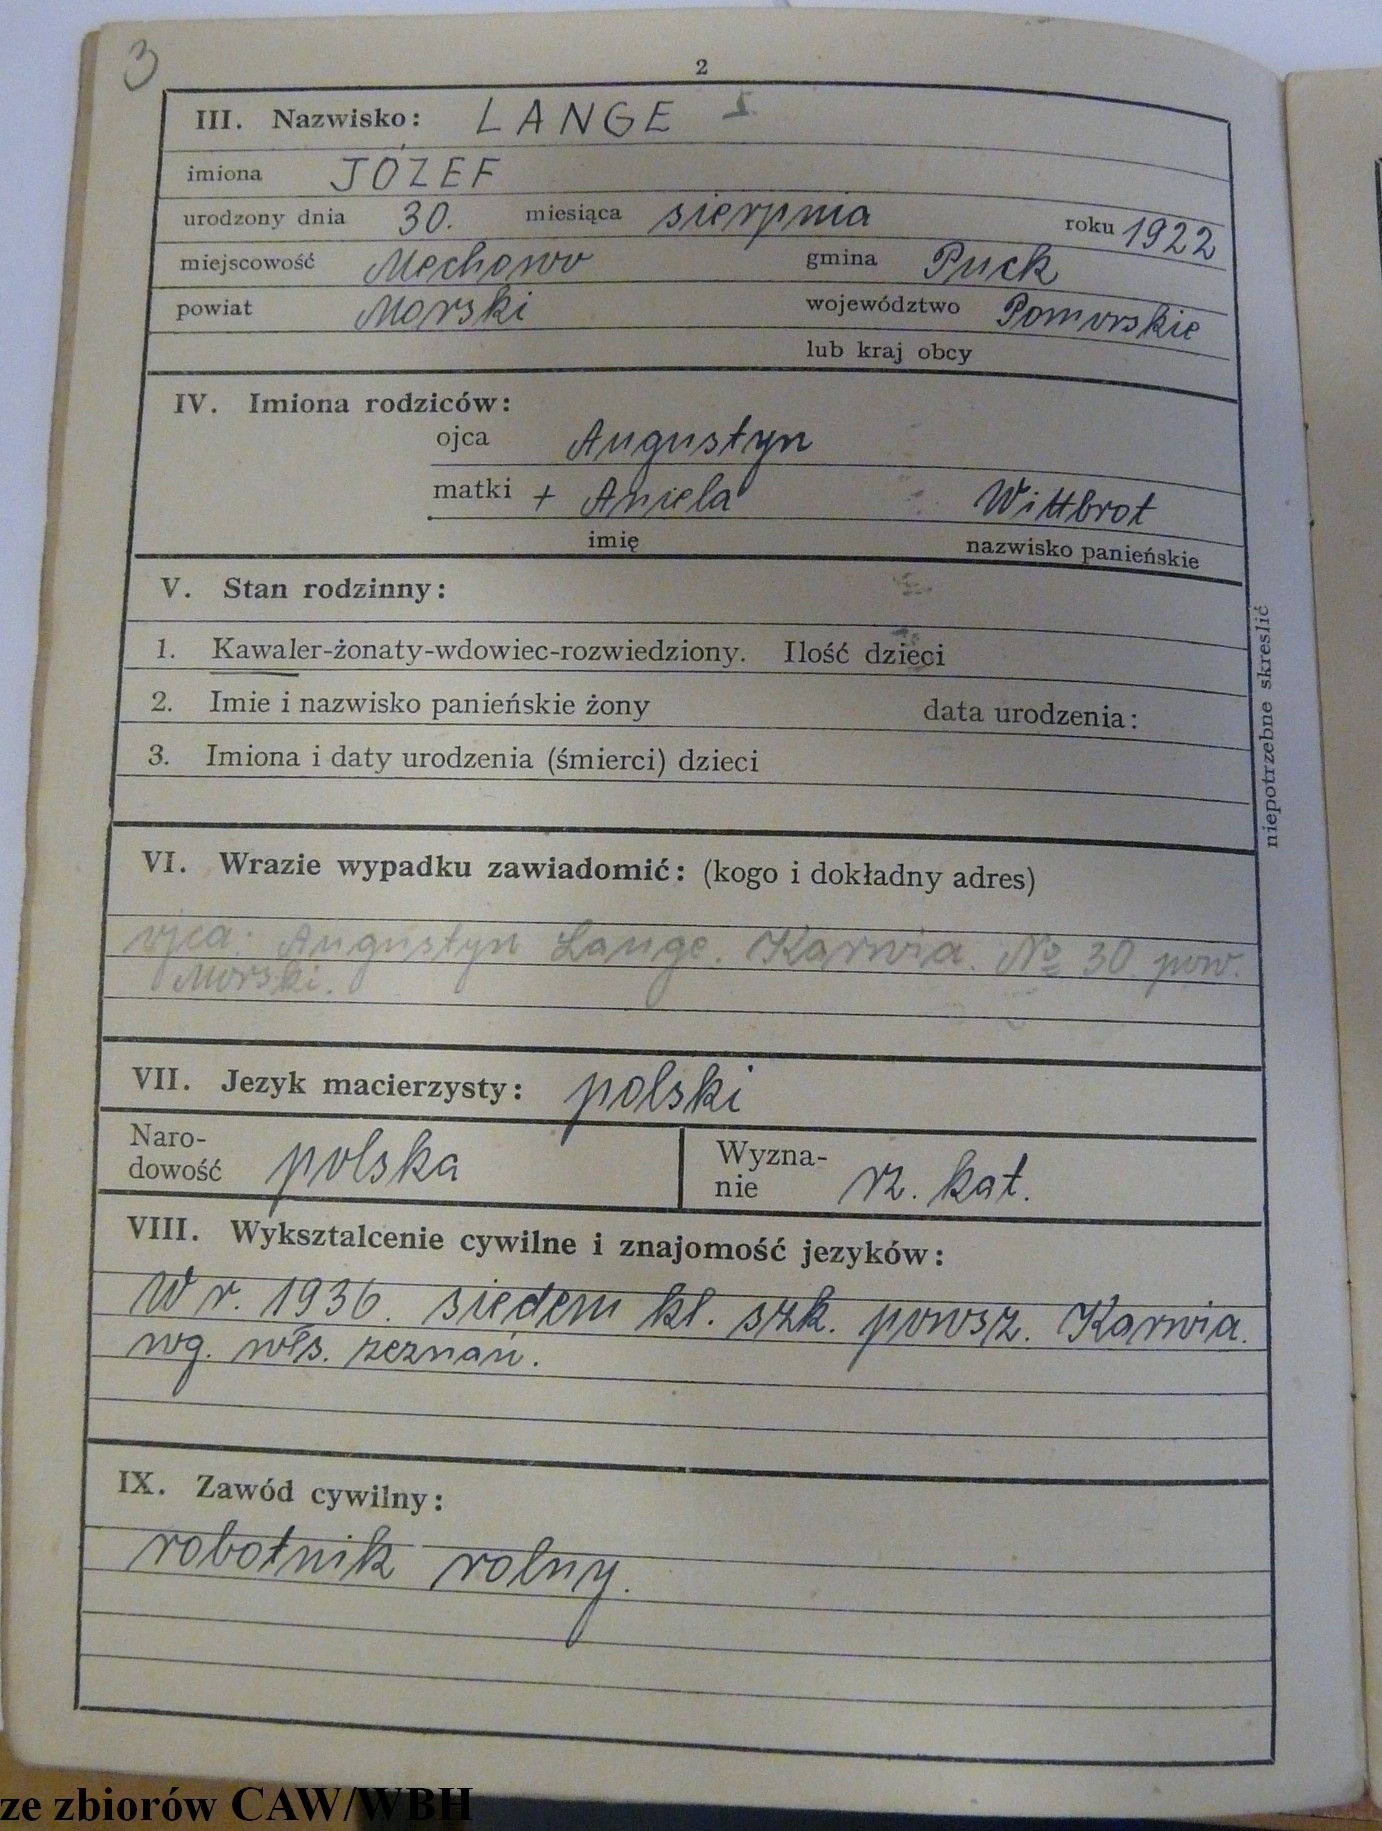 3
2
III. Nazwisko: LANGE
imiona JÓZEF
urodzony dnia 30. miesiąca sierpnia roku 1922
miejscowość Mechowo gmina Puck
powiat Morski województwo Pomorskie
lub kraj obcy
IV. Imiona rodziców:
ojca Augustyn
matki + Aniela Wittbrot
imię nazwisko panieńskie
V. Stan rodzinny:
1. Kawaler-żonaty-wdowiec-rozwiedziony. Ilość dzieci
2. Imie i nazwisko panieńskie żony data urodzenia:
3. Imiona i daty urodzenia (śmierci) dzieci
niepotrzebne skreslić
VI. Wrazie wypadku zawiadomić: (kogo i dokładny adres)
ojca: Augustyn Lange. Karwia. No 30 pow.
Morski.
VII. Jezyk macierzysty: polski
Naro-
dowość polska
Wyzna-
nie rz. kat.
VIII. Wyksztalcenie cywilne i znajomość jezyków:
W r. 1936. siedem kl. szk. powsz. Karwia.
wg. włs. zeznań.
IX. Zawód cywilny:
robotnik rolny.
ze zbiorów CAW/WBH